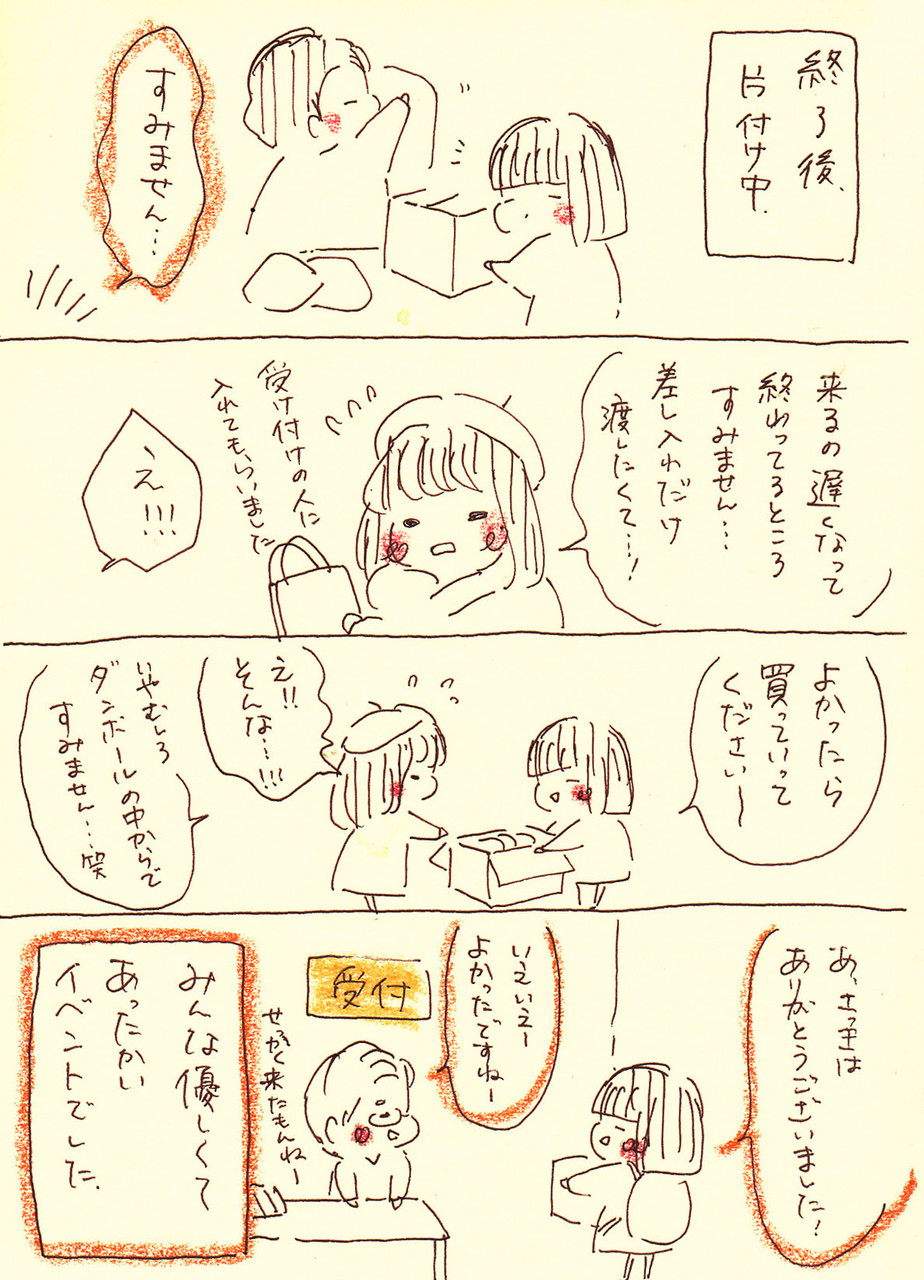 終了後、
片付け中.
すみません…
来るの遅くなって
終わってるところ
すみません…
差し入れだけ
渡したくて…!
受け付けの人に
入れてもらいました
え!!!
よかったら
買っていって
ください〜
え!!
そんな…!!!
いやむしろ
ダンボールの中からで
すみません…笑
あ、さっきは
ありがとうございました!
いえいえー
よかったですねー
受付
せっかく来たもんねー
みんな優しくて
あったかい
イベントでした.